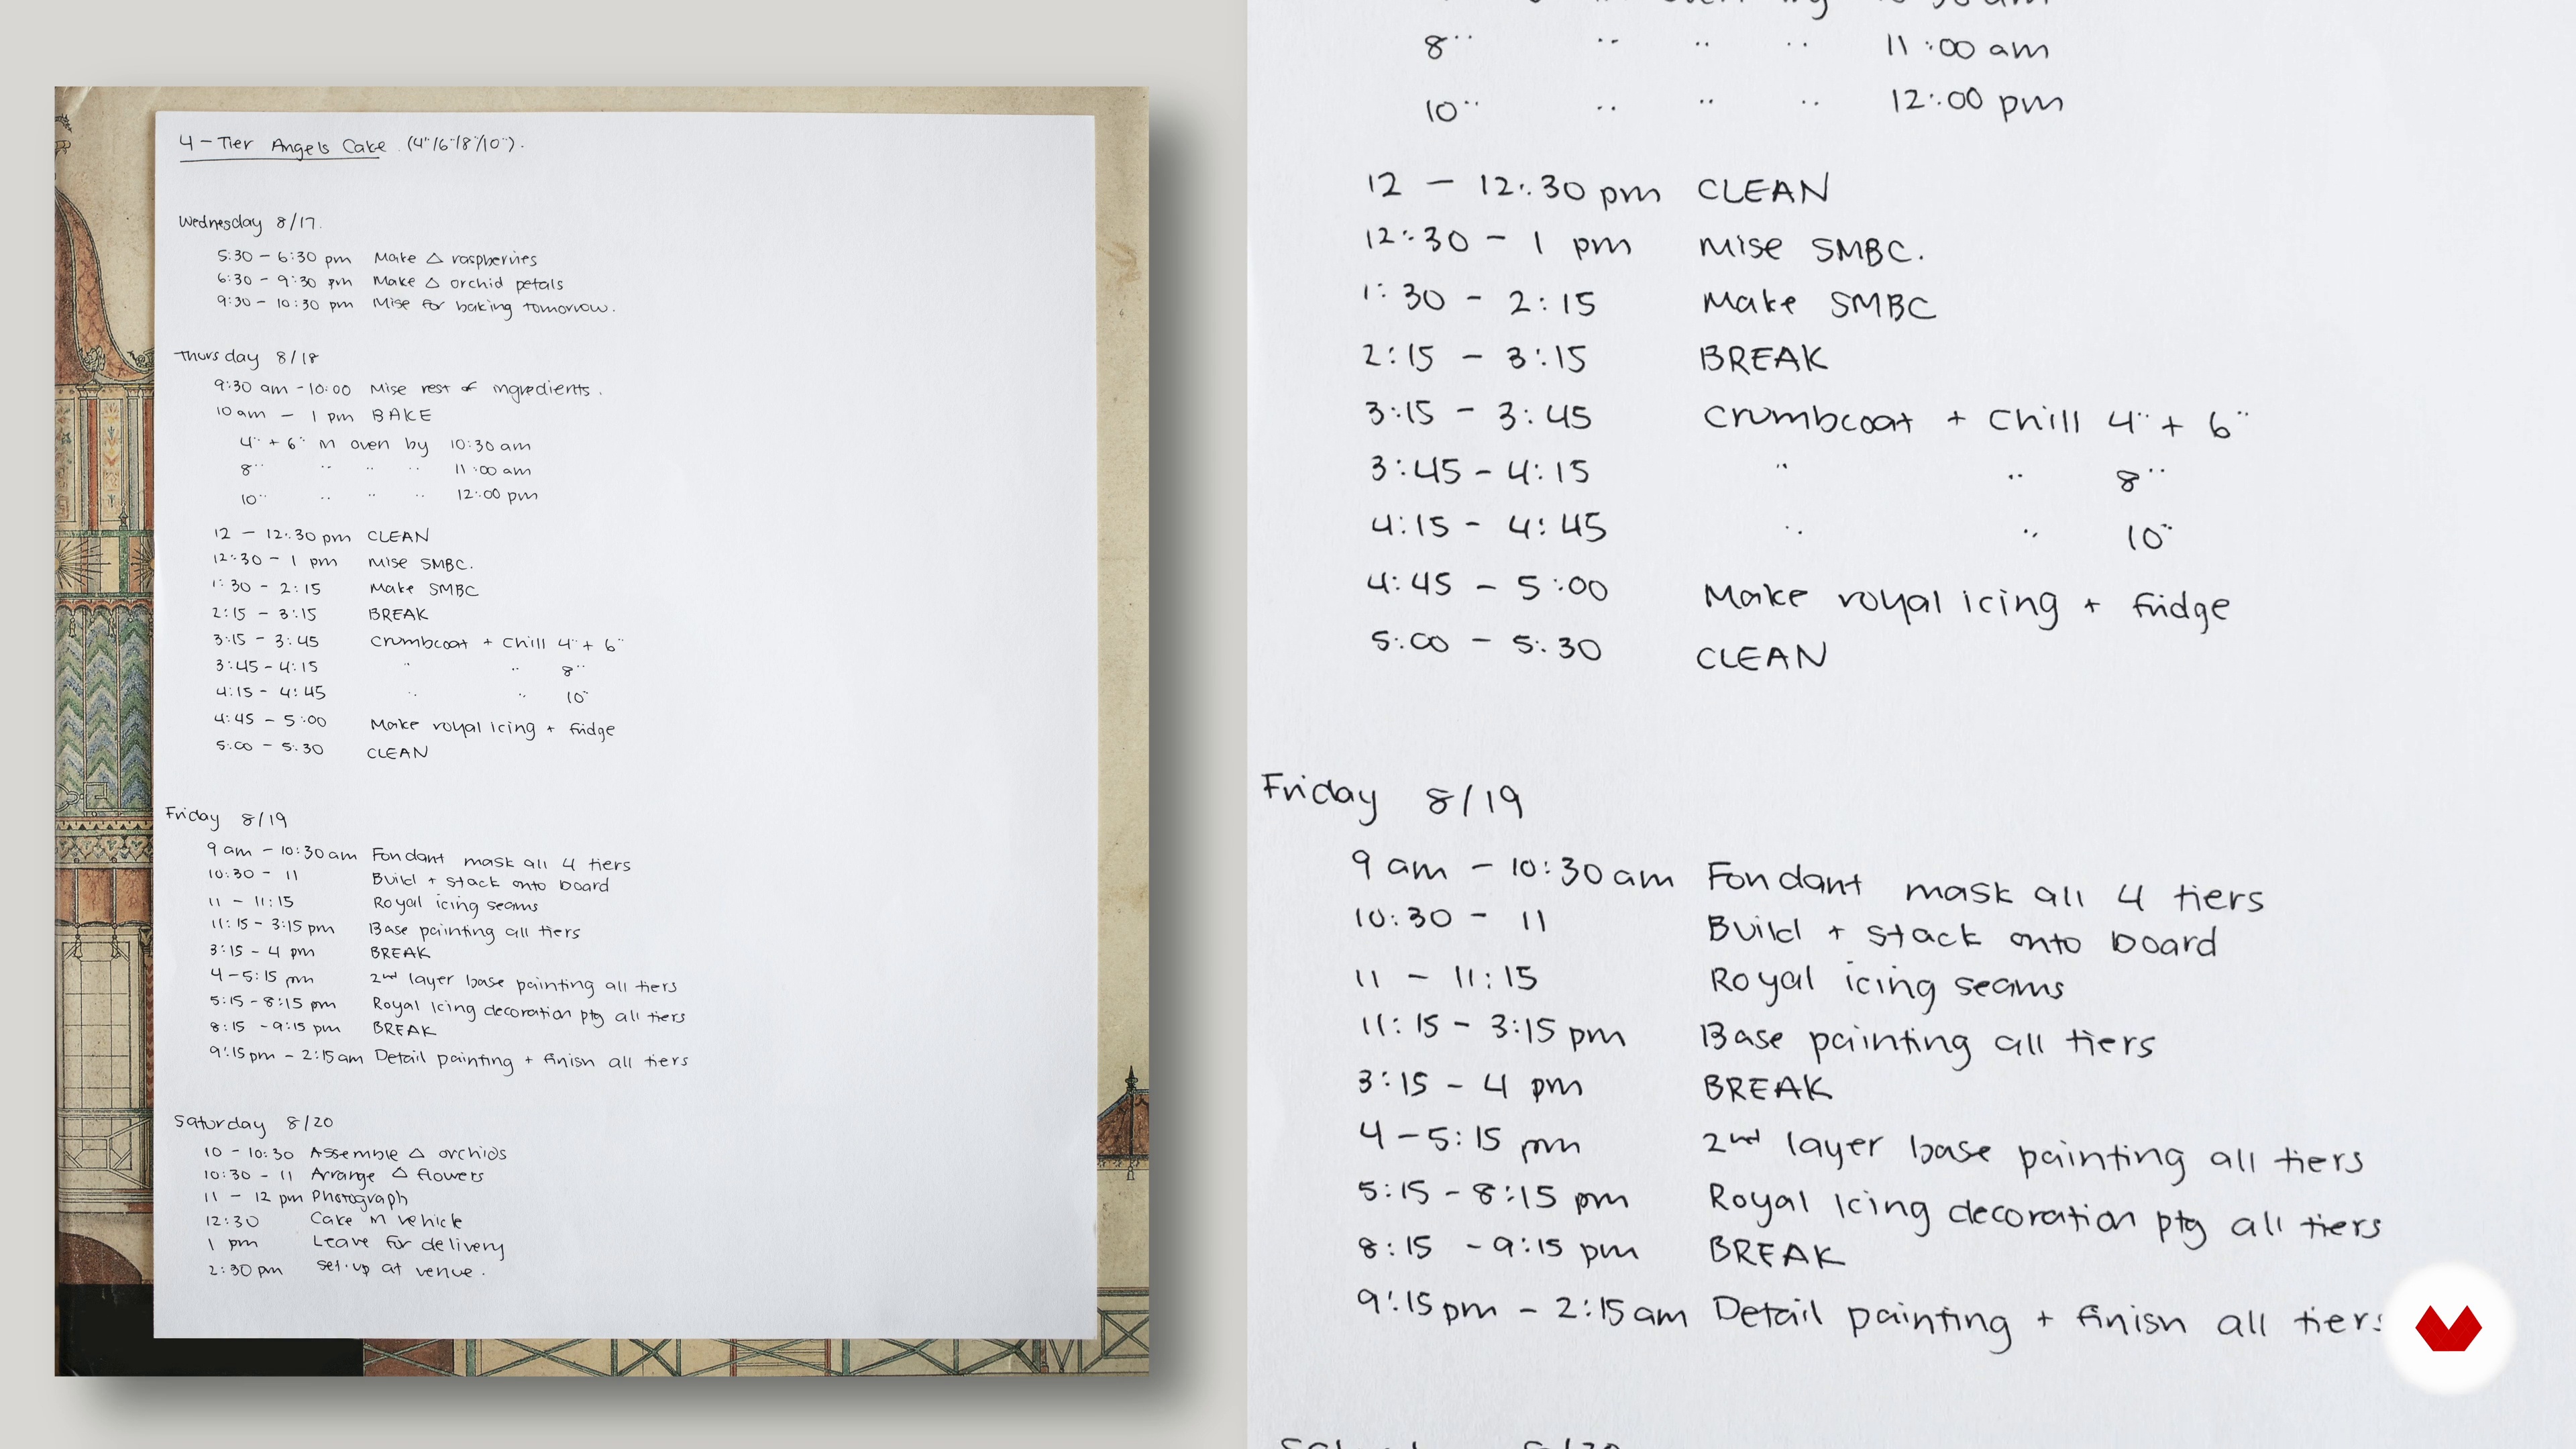 4-Tier Angels Cake (4"/6"/8"/10").
Wednesday 8/17.
5:30 - 6:30 pm Make △ raspberries
6:30 - 9:30 pm Make △ orchid petals
9:30 - 10:30 pm Mise for baking tomorrow.
Thursday 8/18
9:30 am - 10:00 Mise rest of ingredients.
10 am - 1 pm BAKE
4" + 6" in oven by 10:30 am
8" " " " 11:00 am
10" " " " 12:00 pm
12 - 12:30 pm CLEAN
12:30 - 1 pm Mise SMBC.
1:30 - 2:15 Make SMBC
2:15 - 3:15 BREAK
3:15 - 3:45 Crumbcoat + Chill 4" + 6"
3:45 - 4:15 " " 8"
4:15 - 4:45 " " 10"
4:45 - 5:00 Make royal icing + fridge
5:00 - 5:30 CLEAN
Friday 8/19
9 am - 10:30 am Fondant mask all 4 tiers
10:30 - 11 Build + stack onto board
11 - 11:15 Royal icing seams
11:15 - 3:15 pm Base painting all tiers
3:15 - 4 pm BREAK
4 - 5:15 pm 2nd layer base painting all tiers
5:15 - 8:15 pm Royal Icing decoration ptg all tiers
8:15 - 9:15 pm BREAK
9:15 pm - 2:15 am Detail painting + finish all tiers
Saturday 8/20
10 - 10:30 Assemble △ orchids
10:30 - 11 Arrange △ flowers
11 - 12 pm Photograph
12:30 Cake in vehicle
1 pm Leave for delivery
2:30 pm set-up at venue.
8" " " " 11:00 am
10" " " " 12:00 pm
12 - 12:30 pm CLEAN
12:30 - 1 pm Mise SMBC.
1:30 - 2:15 Make SMBC
2:15 - 3:15 BREAK
3:15 - 3:45 Crumbcoat + Chill 4" + 6"
3:45 - 4:15 " " 8"
4:15 - 4:45 " " 10"
4:45 - 5:00 Make royal icing + fridge
5:00 - 5:30 CLEAN
Friday 8/19
9 am - 10:30 am Fondant mask all 4 tiers
10:30 - 11 Build + stack onto board
11 - 11:15 Royal icing seams
11:15 - 3:15 pm Base painting all tiers
3:15 - 4 pm BREAK
4 - 5:15 pm 2nd layer base painting all tiers
5:15 - 8:15 pm Royal Icing decoration ptg all tiers
8:15 - 9:15 pm BREAK
9:15 pm - 2:15 am Detail painting + finish all tiers